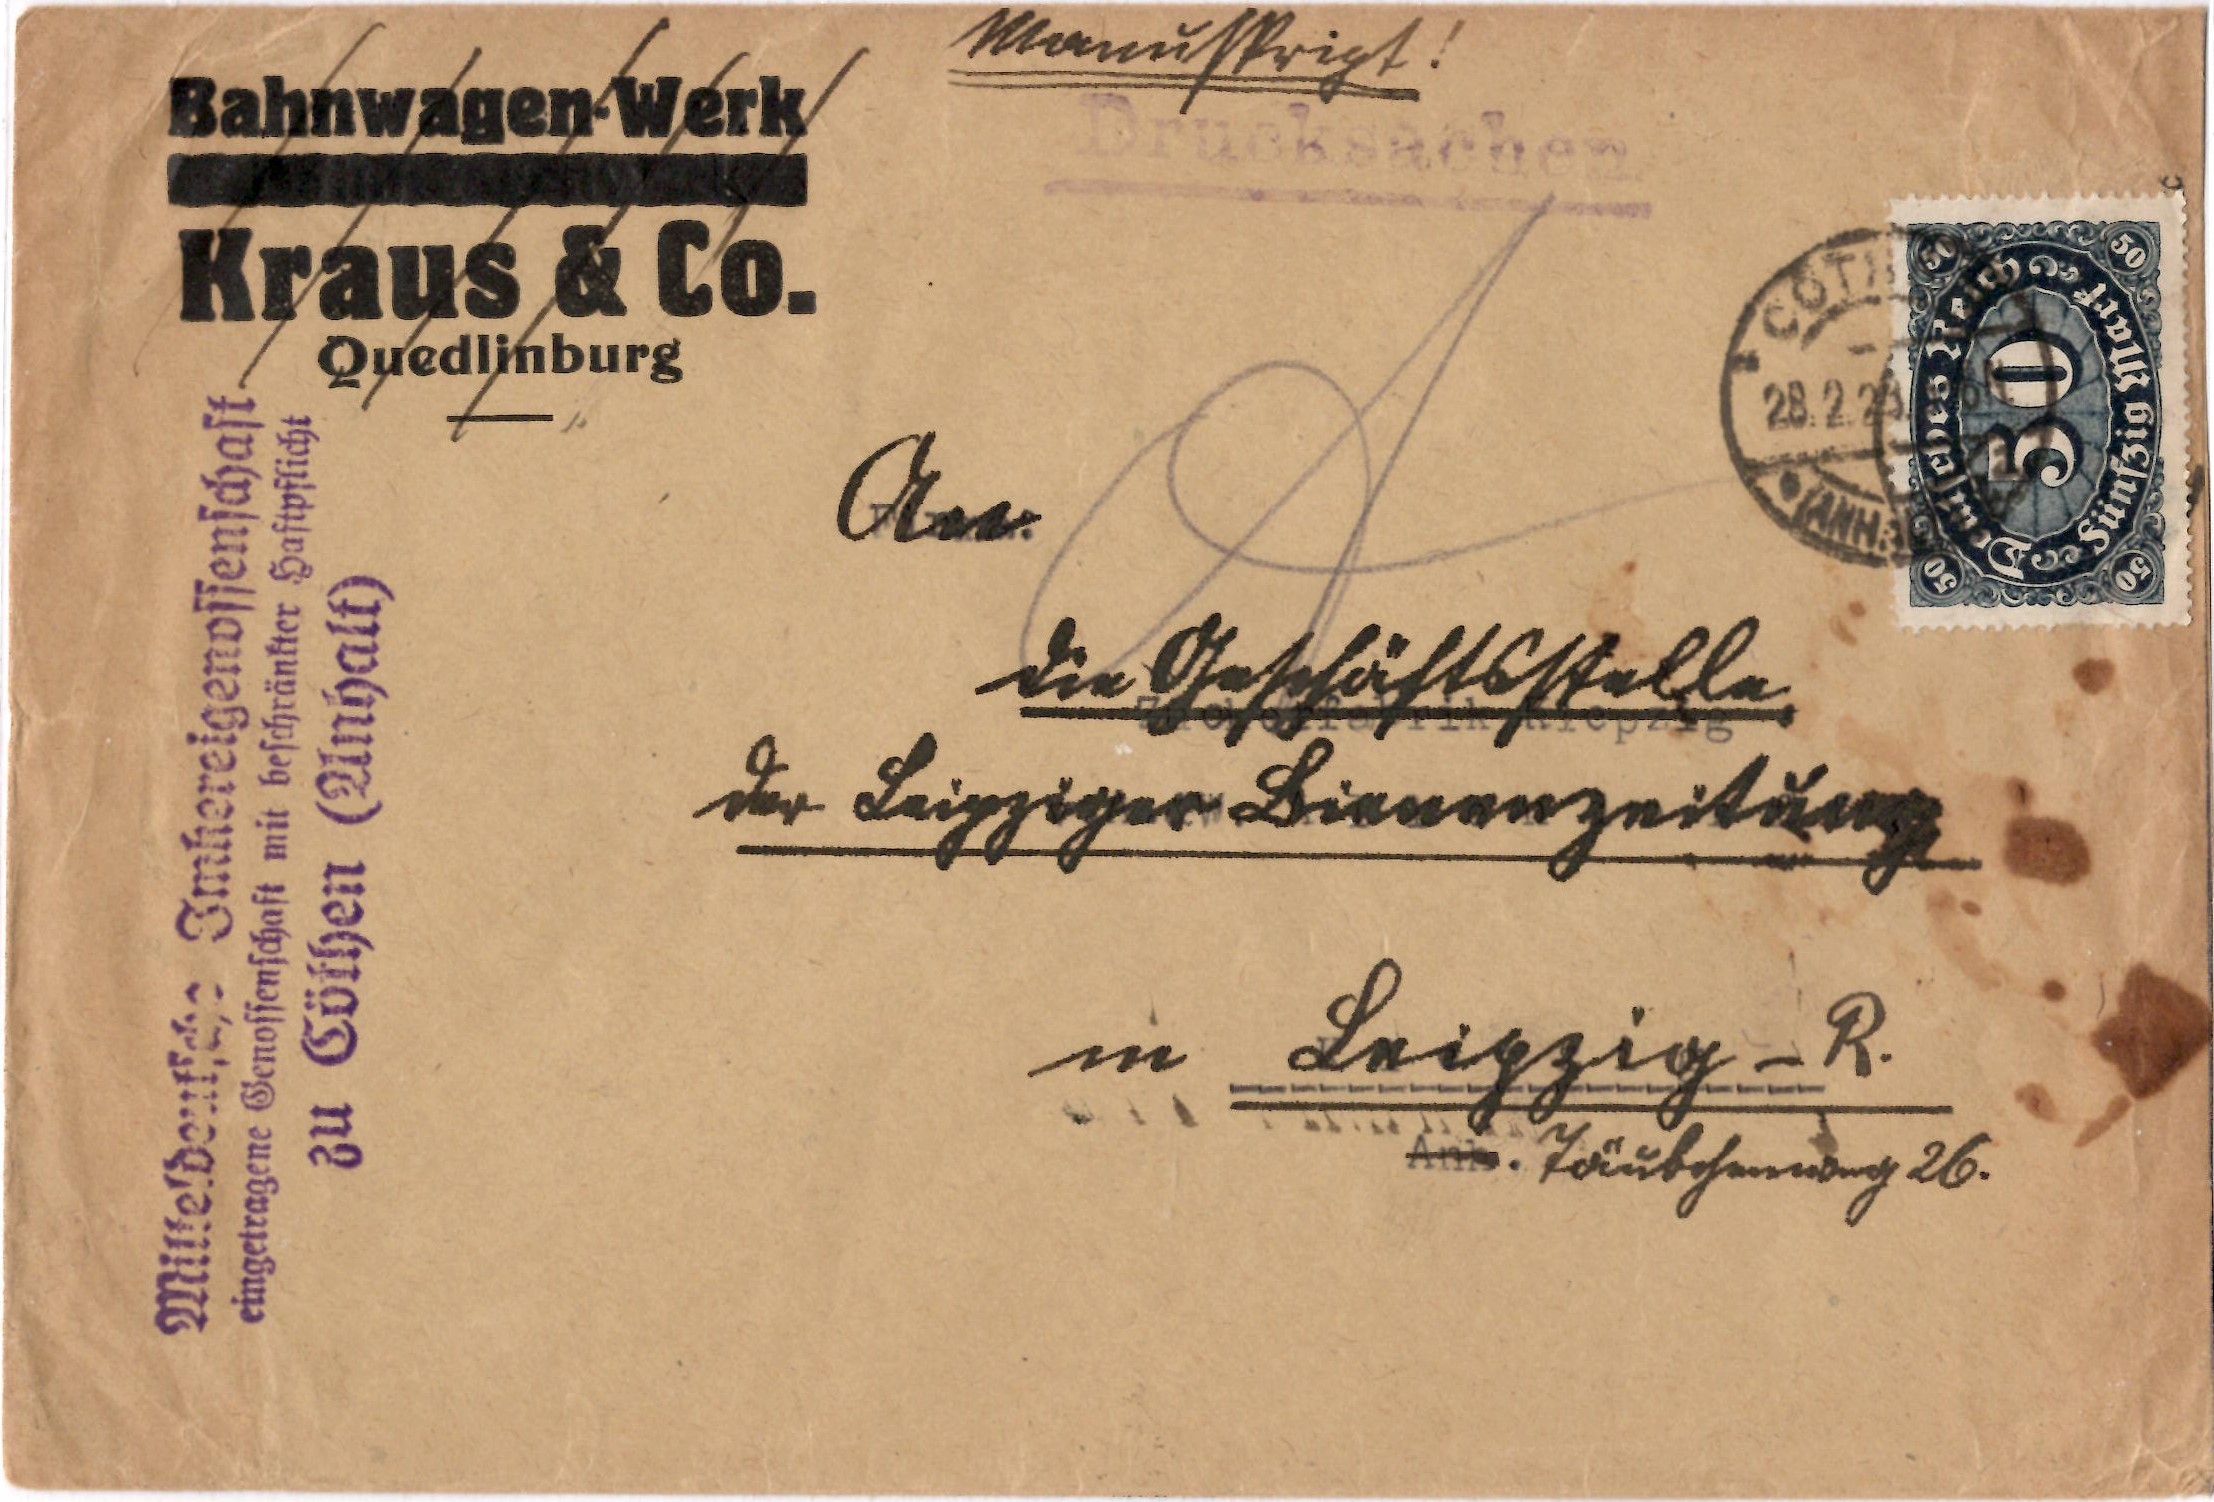 Manuskript!
Drucksachen
Bahnwagen-Werk
Kraus & Co.
Quedlinburg
Mitteldeutsche Imkereigenossenschaft
eingetragene Genossenschaft mit beschränkter Haftpflicht
zu Cöthen (Anhalt)
28.2.23
(ANH.)
50
50
Deutsches Reich
50
Fünfzig Mark
50
50
An
die Geschäftsstelle
der Leipziger Bienenzeitung
in Leipzig - R.
Anh. Täubchenweg 26.